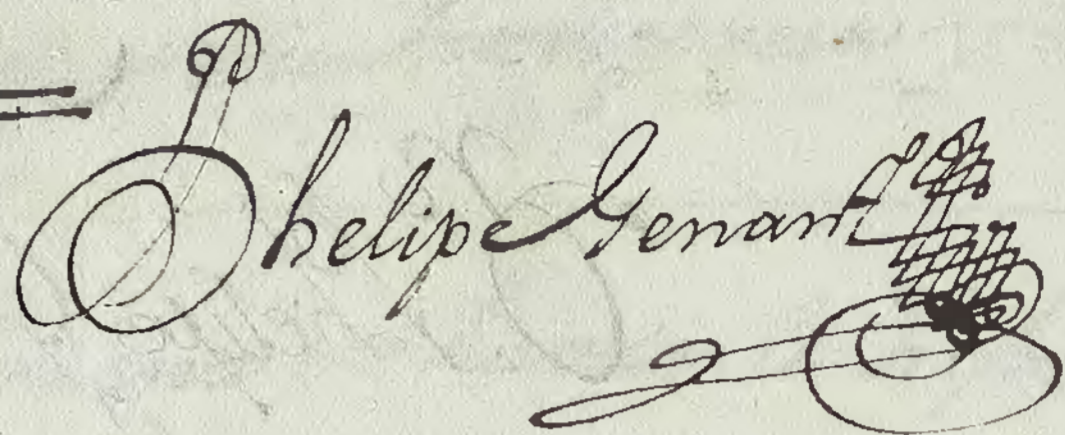 Phelipe Genant